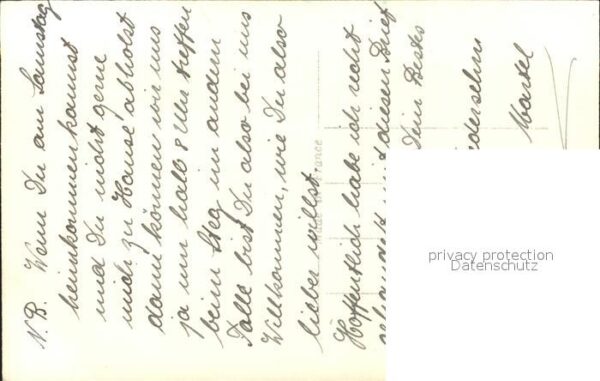 N.B. Wann Du am Samstag
heimkommen kannst
und Du nicht gerne
mich zu Hause abholst
dann können wir uns
ja um halb 8 Uhr treffen
beim Steg im andern
Falle bist Du also bei uns
Willkommen, wie Du also
lieber willst
Hoffentlich habe ich recht
diesen Brief
Dein
Martel
France
privacy protection
Datenschutz